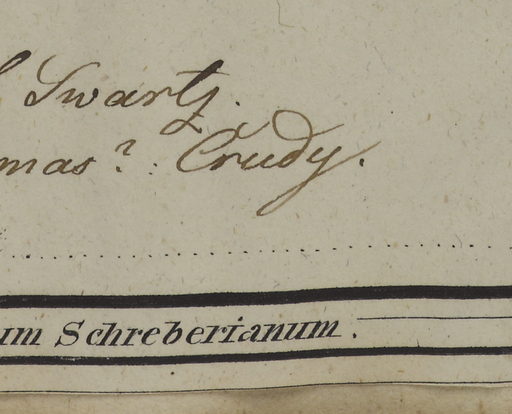 Swartz.
mas?. Crudy.
um Schreberianum.